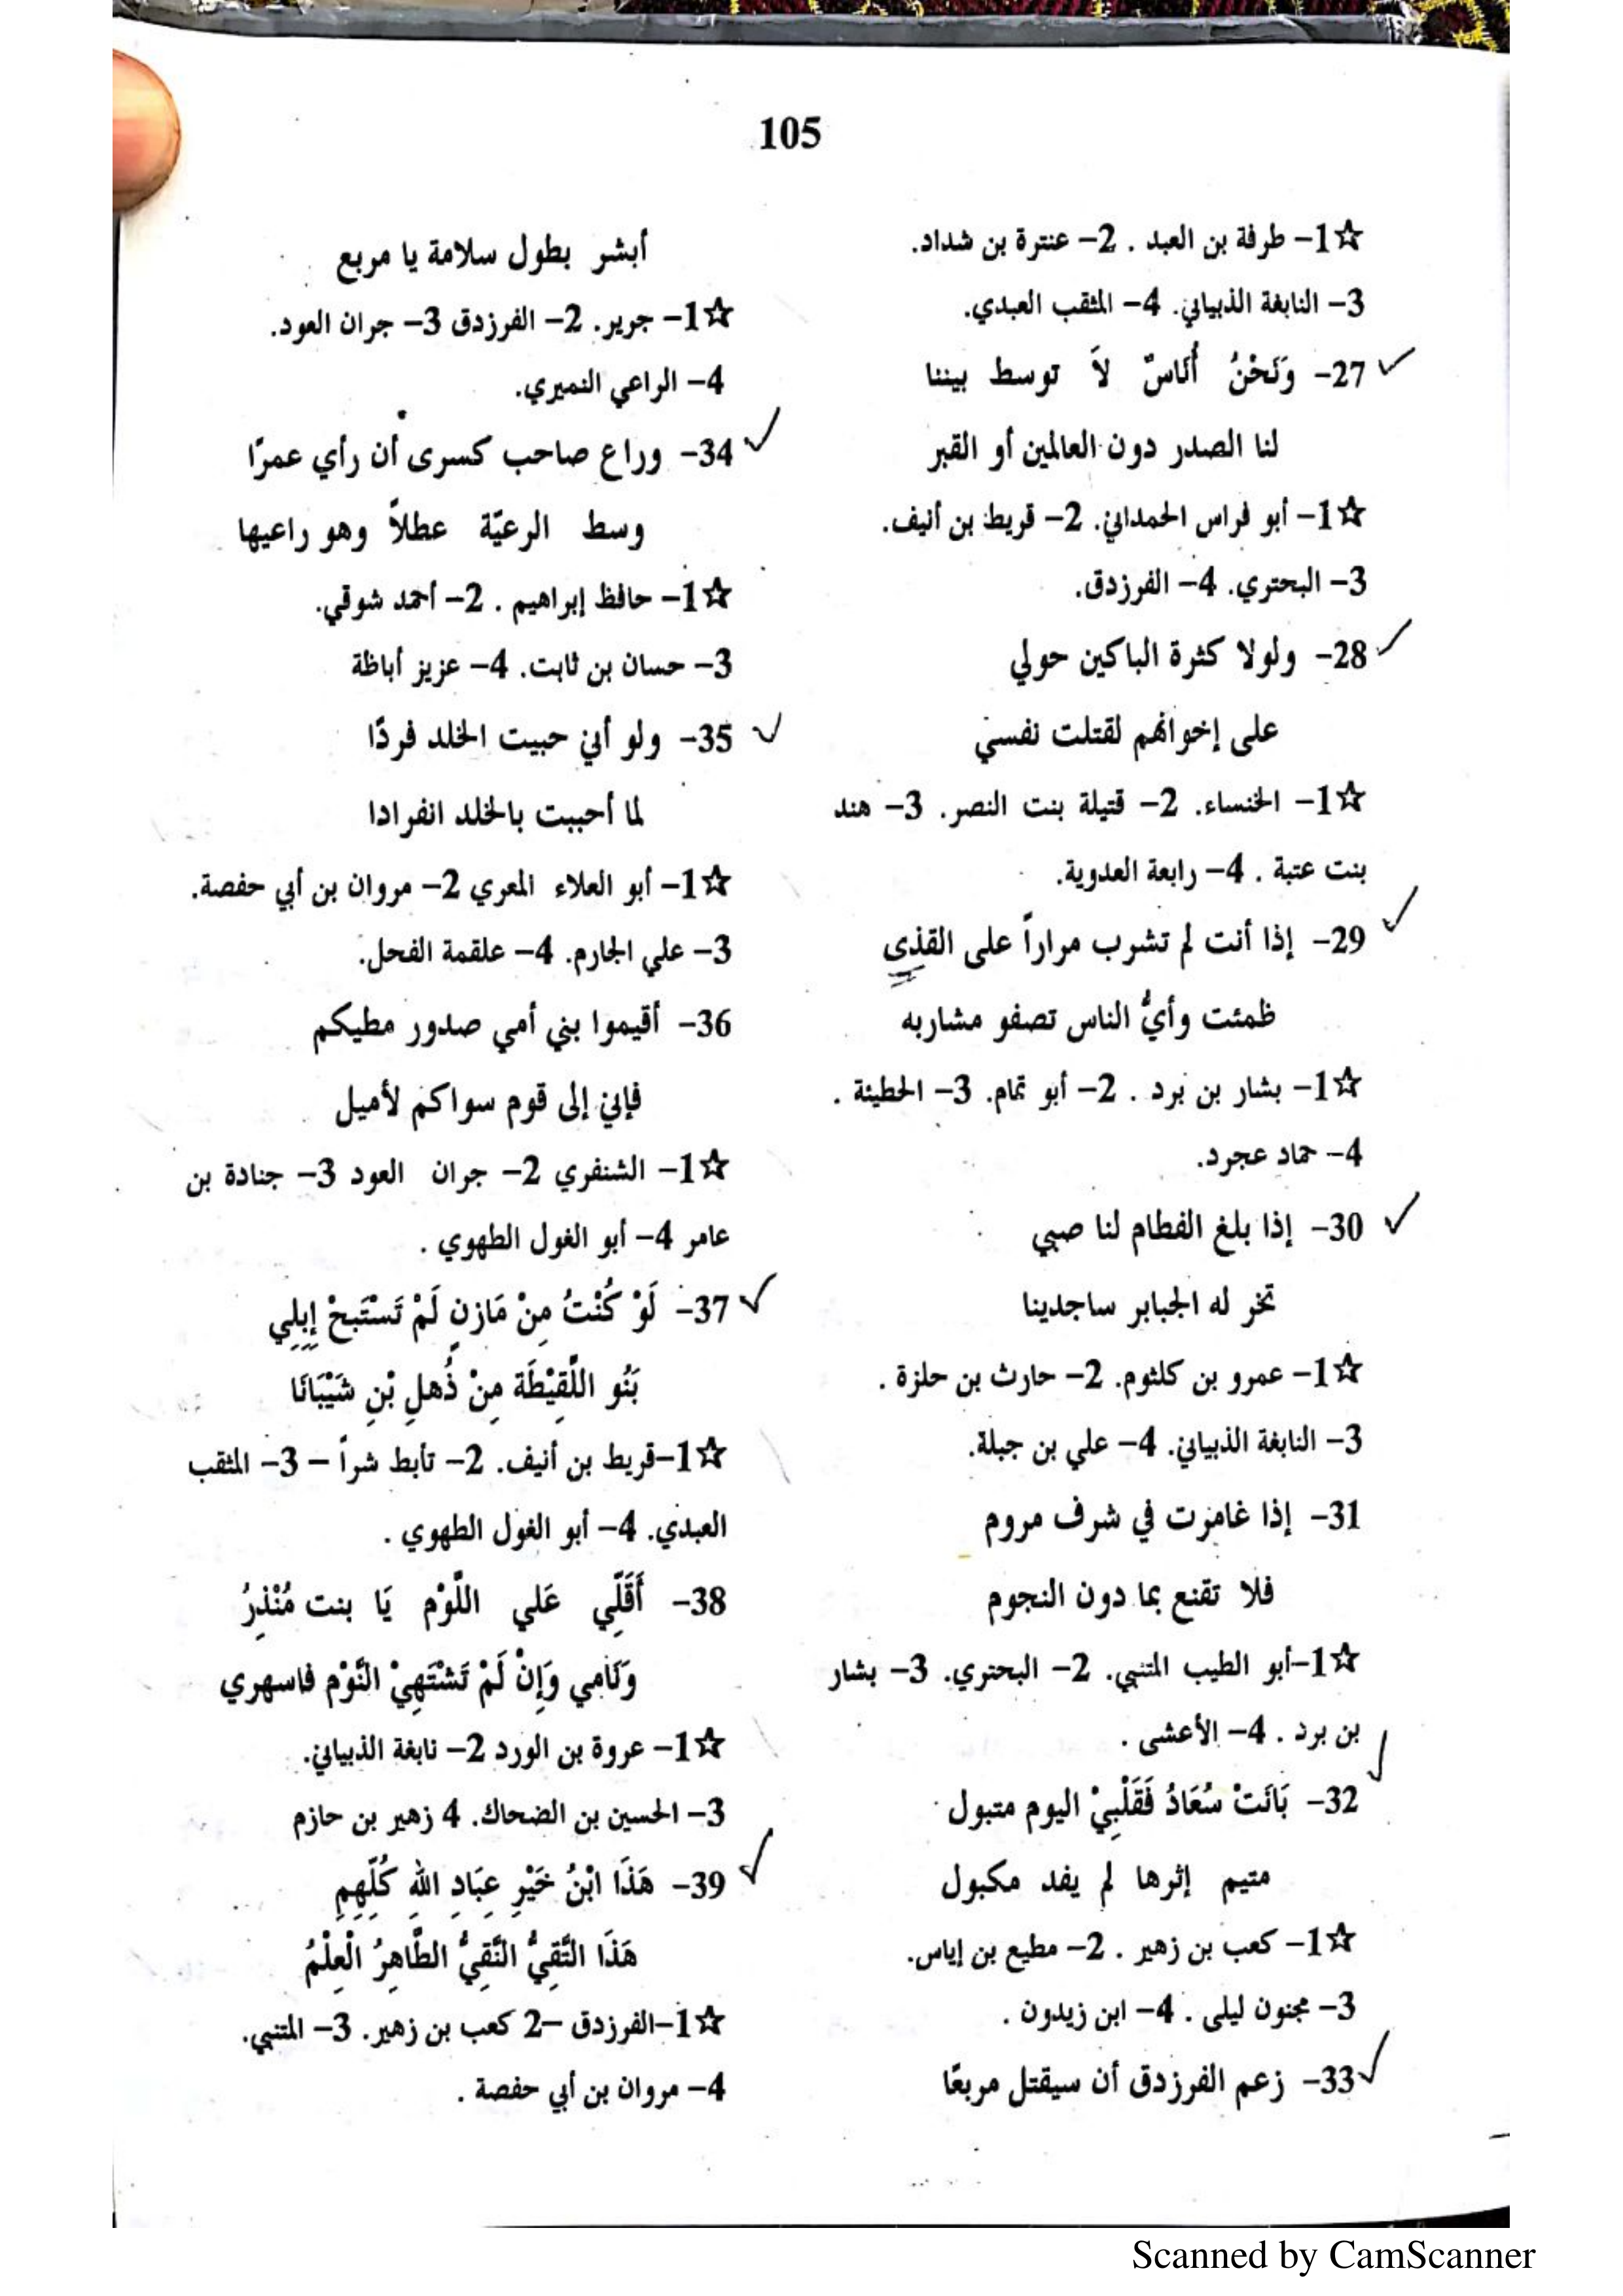 105
☆1– طرفة بن العبد . 2– عنترة بن شداد.
3– النابغة الذبياني. 4– المثقب العبدي.
27– وَنَحْنُ أُنَاسٌ لاَ توسط بيننا
لنا الصدر دون العالمين أو القبر
☆1– أبو فراس الحمداني. 2– قريط بن أنيف.
3– البحتري. 4– الفرزدق.
28– ولولا كثرة الباكين حولي
على إخوانهم لقتلت نفسي
☆1– الخنساء. 2– قتيلة بنت النصر. 3– هند
بنت عتبة . 4– رابعة العدوية.
29– إذا أنت لم تشرب مراراً على القذى
ظمئت وأيُّ الناس تصفو مشاربه
☆1– بشار بن برد . 2– أبو تمام. 3– الحطيئة .
4– حماد عجرد.
30– إذا بلغ الفطام لنا صبي
تخر له الجبابر ساجدينا
☆1– عمرو بن كلثوم. 2– حارث بن حلزة .
3– النابغة الذبياني. 4– علي بن جبلة.
31– إذا غامرت في شرف مروم
فلا تقنع بما دون النجوم
☆1–أبو الطيب المتنبي. 2– البحتري. 3– بشار
بن برد . 4– الأعشى .
32– بَانَتْ سُعَادُ فَقَلْبِيْ اليوم متبول
متيم إثرها لم يفد مكبول
☆1– كعب بن زهير . 2– مطيع بن إياس.
3– مجنون ليلى . 4– ابن زيدون .
33– زعم الفرزدق أن سيقتل مربعًا
أبشر بطول سلامة يا مربع
☆1– جرير. 2– الفرزدق 3– جران العود.
4– الراعي النميري.
34– وراع صاحب كسرى أن رأي عمرًا
وسط الرعيّة عطلاً وهو راعيها
☆1– حافظ إبراهيم . 2– أحمد شوقي.
3– حسان بن ثابت. 4– عزيز أباظة
35– ولو أني حبيت الخلد فردًا
لما أحببت بالخلد انفرادا
☆1– أبو العلاء المعري 2– مروان بن أبي حفصة.
3– علي الجارم. 4– علقمة الفحل.
36– أقيموا بني أمي صدور مطيكم
فإني إلى قوم سواكم لأميل
☆1– الشنفري 2– جران العود 3– جنادة بن
عامر 4– أبو الغول الطهوي .
37– لَوْ كُنْتُ مِنْ مَازِنٍ لَمْ تَسْتَبِحْ إِبِلِي
بَنُو اللَّقِيْطَة مِنْ ذُهلِ بْنِ شَيْبَانَا
☆1–قريط بن أنيف. 2– تأبط شراً – 3– المثقب
العبدي. 4– أبو الغول الطهوي .
38– أَقَلِّي عَلي اللَّوْم يَا بنت مُنْذِرُ
وَنَامي وَإِنْ لَمْ تَشْتَهِيْ النَّوْم فاسهري
☆1– عروة بن الورد 2– نابغة الذبياني.
3– الحسين بن الضحاك. 4 زهير بن حازم
39– هَذَا ابْنُ خَيْرِ عِبَادِ اللهِ كُلِّهِمِ
هَذَا التَّقِيُّ النَّقِيُّ الطَّاهِرُ الْعِلْمُ
☆1–الفرزدق –2 كعب بن زهير. 3– المتنبي.
4– مروان بن أبي حفصة .
Scanned by CamScanner